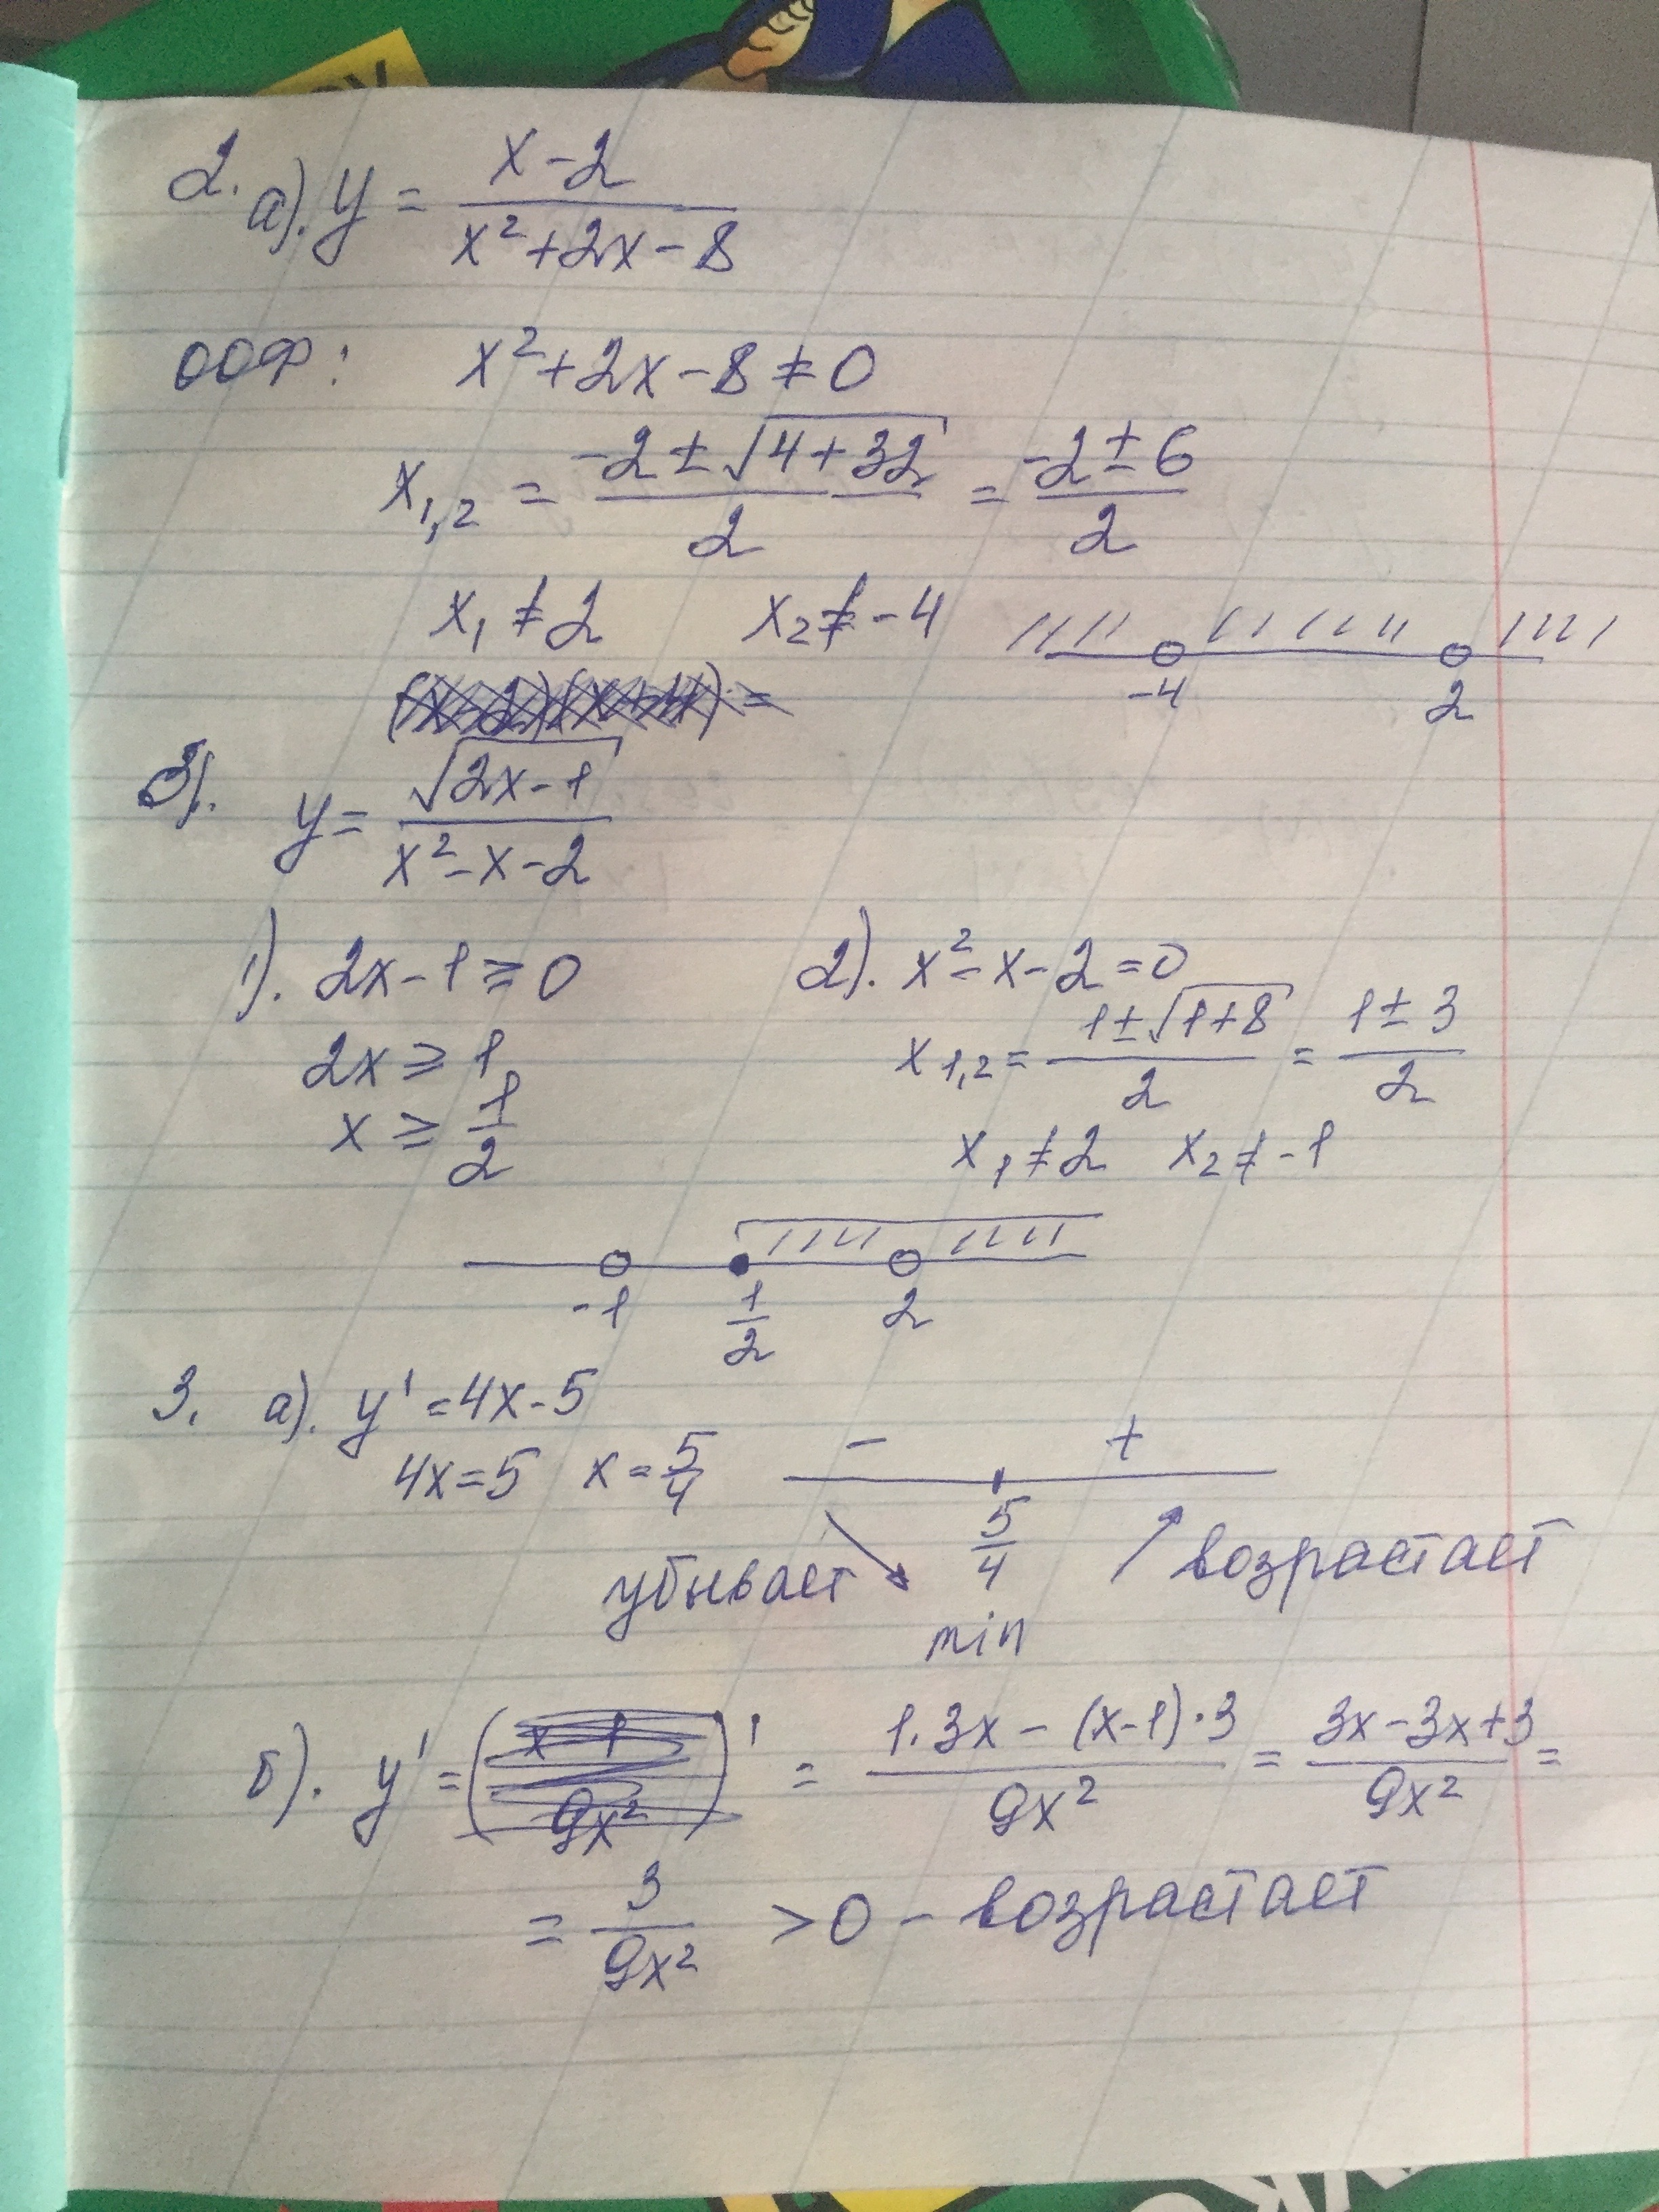 2. а). y = (x-2)/(x²+2x-8)
ООФ: x²+2x-8≠0
x₁,₂ = (-2±√(4+32))/2 = (-2±6)/2
x₁≠2 x₂≠-4
-4 2
y = √(2x-1)/(x²-x-2)
1). 2x-1≥0 2). x²-x-2=0
2x≥1 x₁,₂ = (1±√(1+8))/2 = (1±3)/2
x≥1/2 x₁≠2 x₂≠-1
-1 1/2 2
3. а). y'=4x-5
4x=5 x=5/4 - +
5/4
убывает возрастает
min
б). y' = ( )' = (1·3x-(x-1)·3)/9x² = (3x-3x+3)/9x² =
= 3/9x² >0 - возрастает